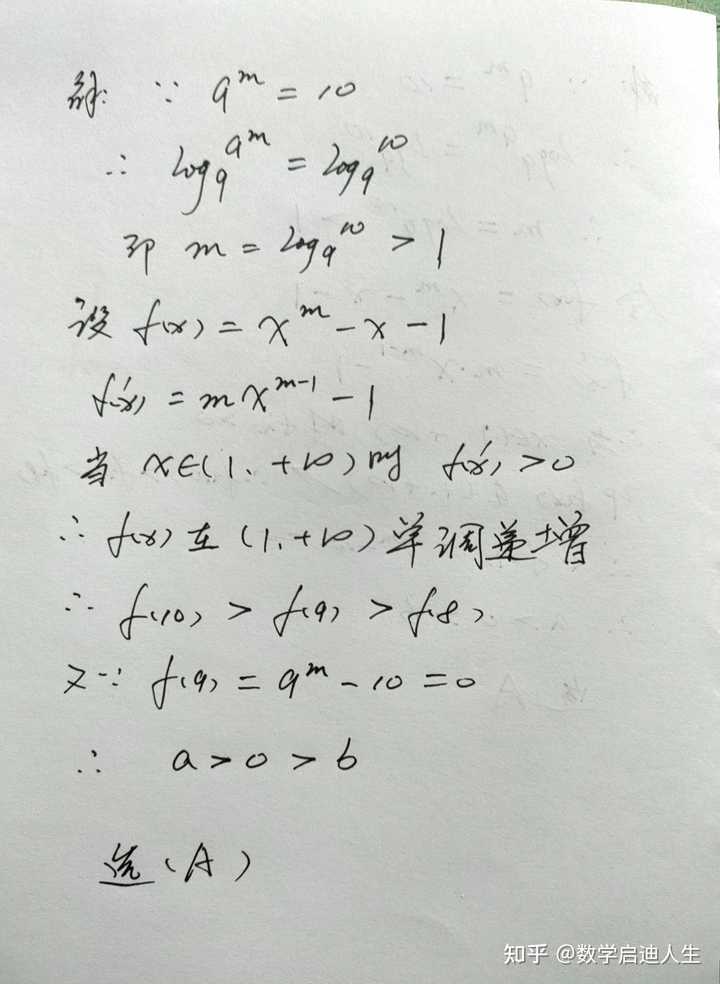 解: ∵ 9^m = 10
∴ log₉9^m = log₉10
即 m = log₉10 > 1
设 f(x) = x^m - x - 1
f'(x) = mx^(m-1) - 1
当 x∈(1, +∞) 时 f'(x) > 0
∴ f(x) 在 (1, +∞) 单调递增
∴ f(10) > f(9) > f(8)
又∵ f(9) = 9^m - 10 = 0
∴ a > 0 > b
选 (A)
知乎 @数学启迪人生